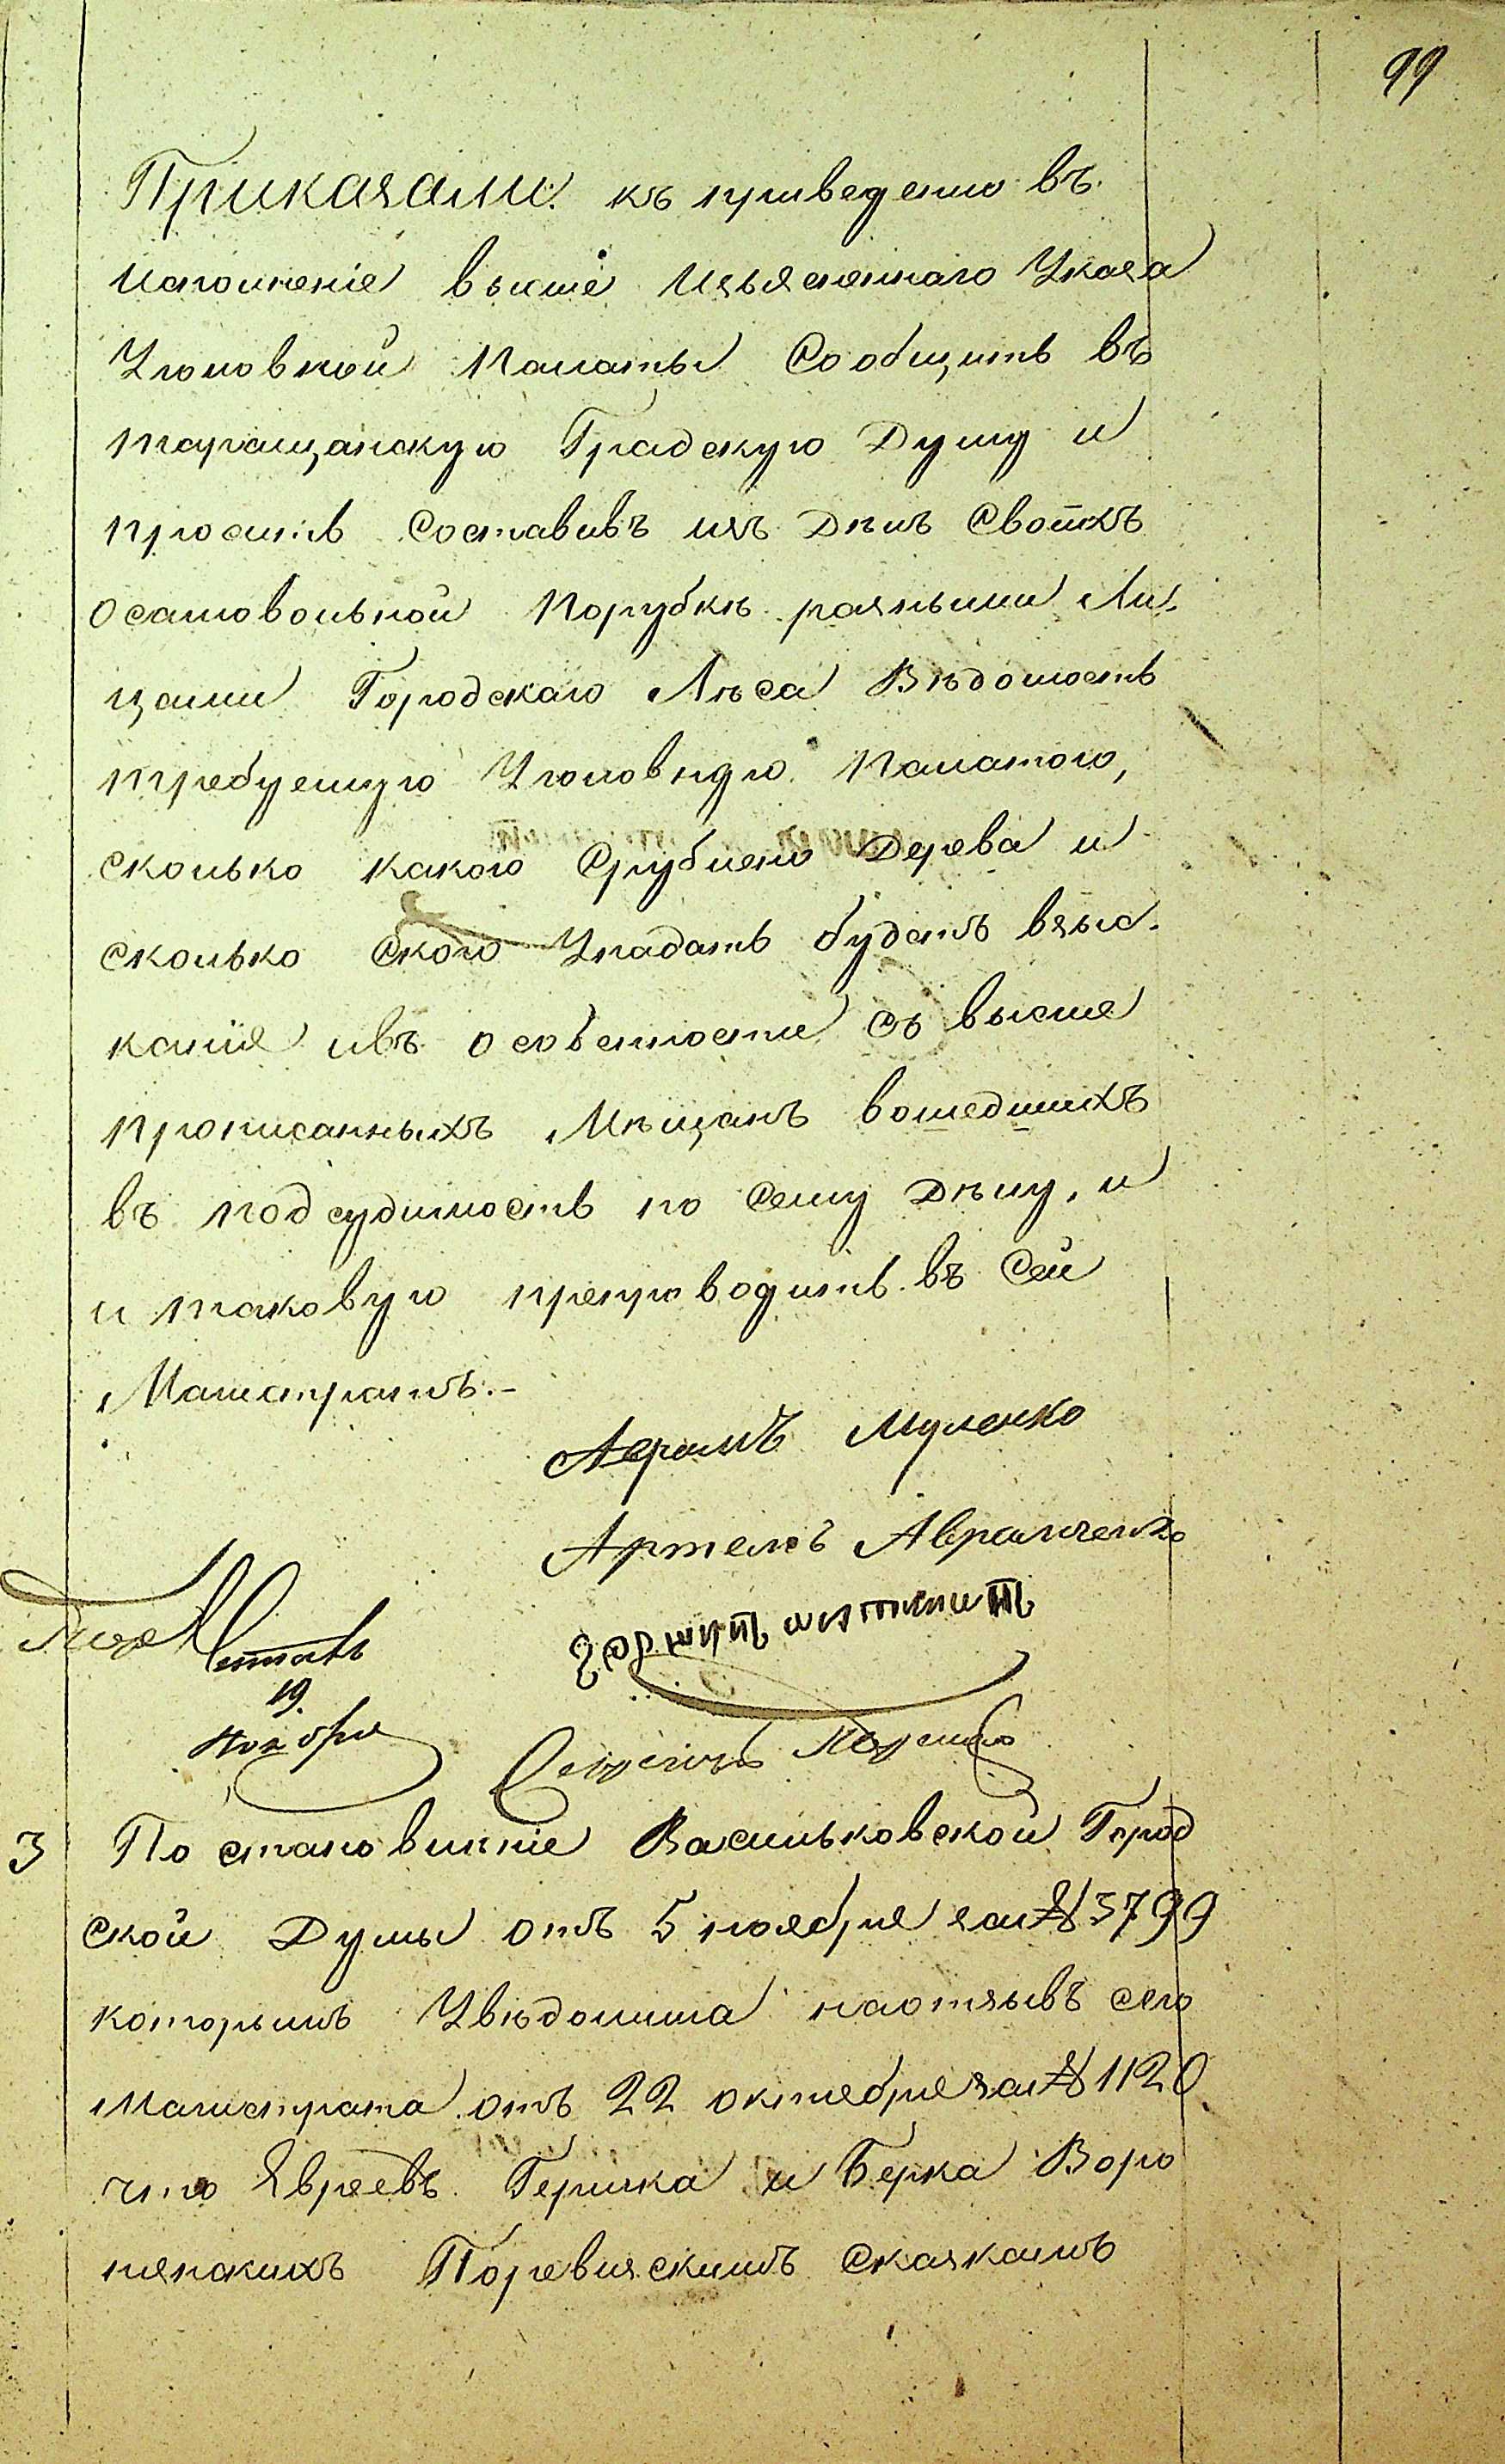 99
Приказали: къ приведению въ
исполненіе выше Изъясненнаго Указа
Уголовной Палаты Сообщить въ
таращанскую Градскую Думу и
просить Составивъ изъ Дѣлъ Своихъ
осамовольной Порубкѣ разными Ли-
цами Городскаго Лѣса Вѣдомость
требуемую Уголовную Палатою,
сколько какого Срублено Дерева и
сколько Ского Упадать будетъ взыс-
каніе ивъ особенности съ выше
прописанныхъ Мѣщанъ вошедшихъ
въ подсудимость по Сему Дѣлу, и
и таковую препроводить въ Сей
Магистратъ.-
Муленко
Артемъ Авраменко
Читалъ
19.
Ноября
3 По становленіе Васильковской Город
ской Думы отъ 5 ноября за № 3799
которымъ Увѣдомила наотзывъ сего
Магистрата отъ 22 октября за № 1120
что Евреевъ Гершка и Берка Воро
нянскихъ Поревизскимъ Сказкамъ